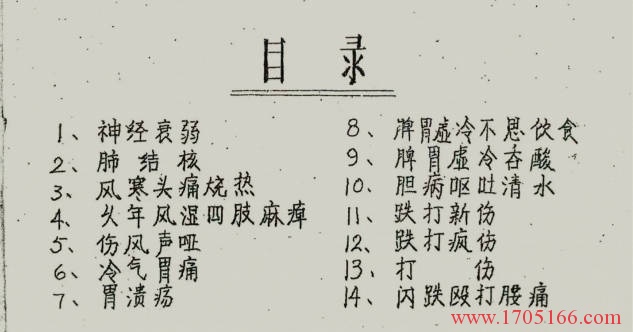 目 录
1、神经衰弱
2、肺结核
3、风寒头痛烧热
4、久年风湿四肢麻痺
5、伤风声哑
6、冷气胃痛
7、胃溃疡
8、脾胃虚冷不思饮食
9、脾胃虚冷吞酸
10、胆病呕吐清水
11、跌打新伤
12、跌打疯伤
13、打 伤
14、闪跌殴打腰痛
www.1705166.com